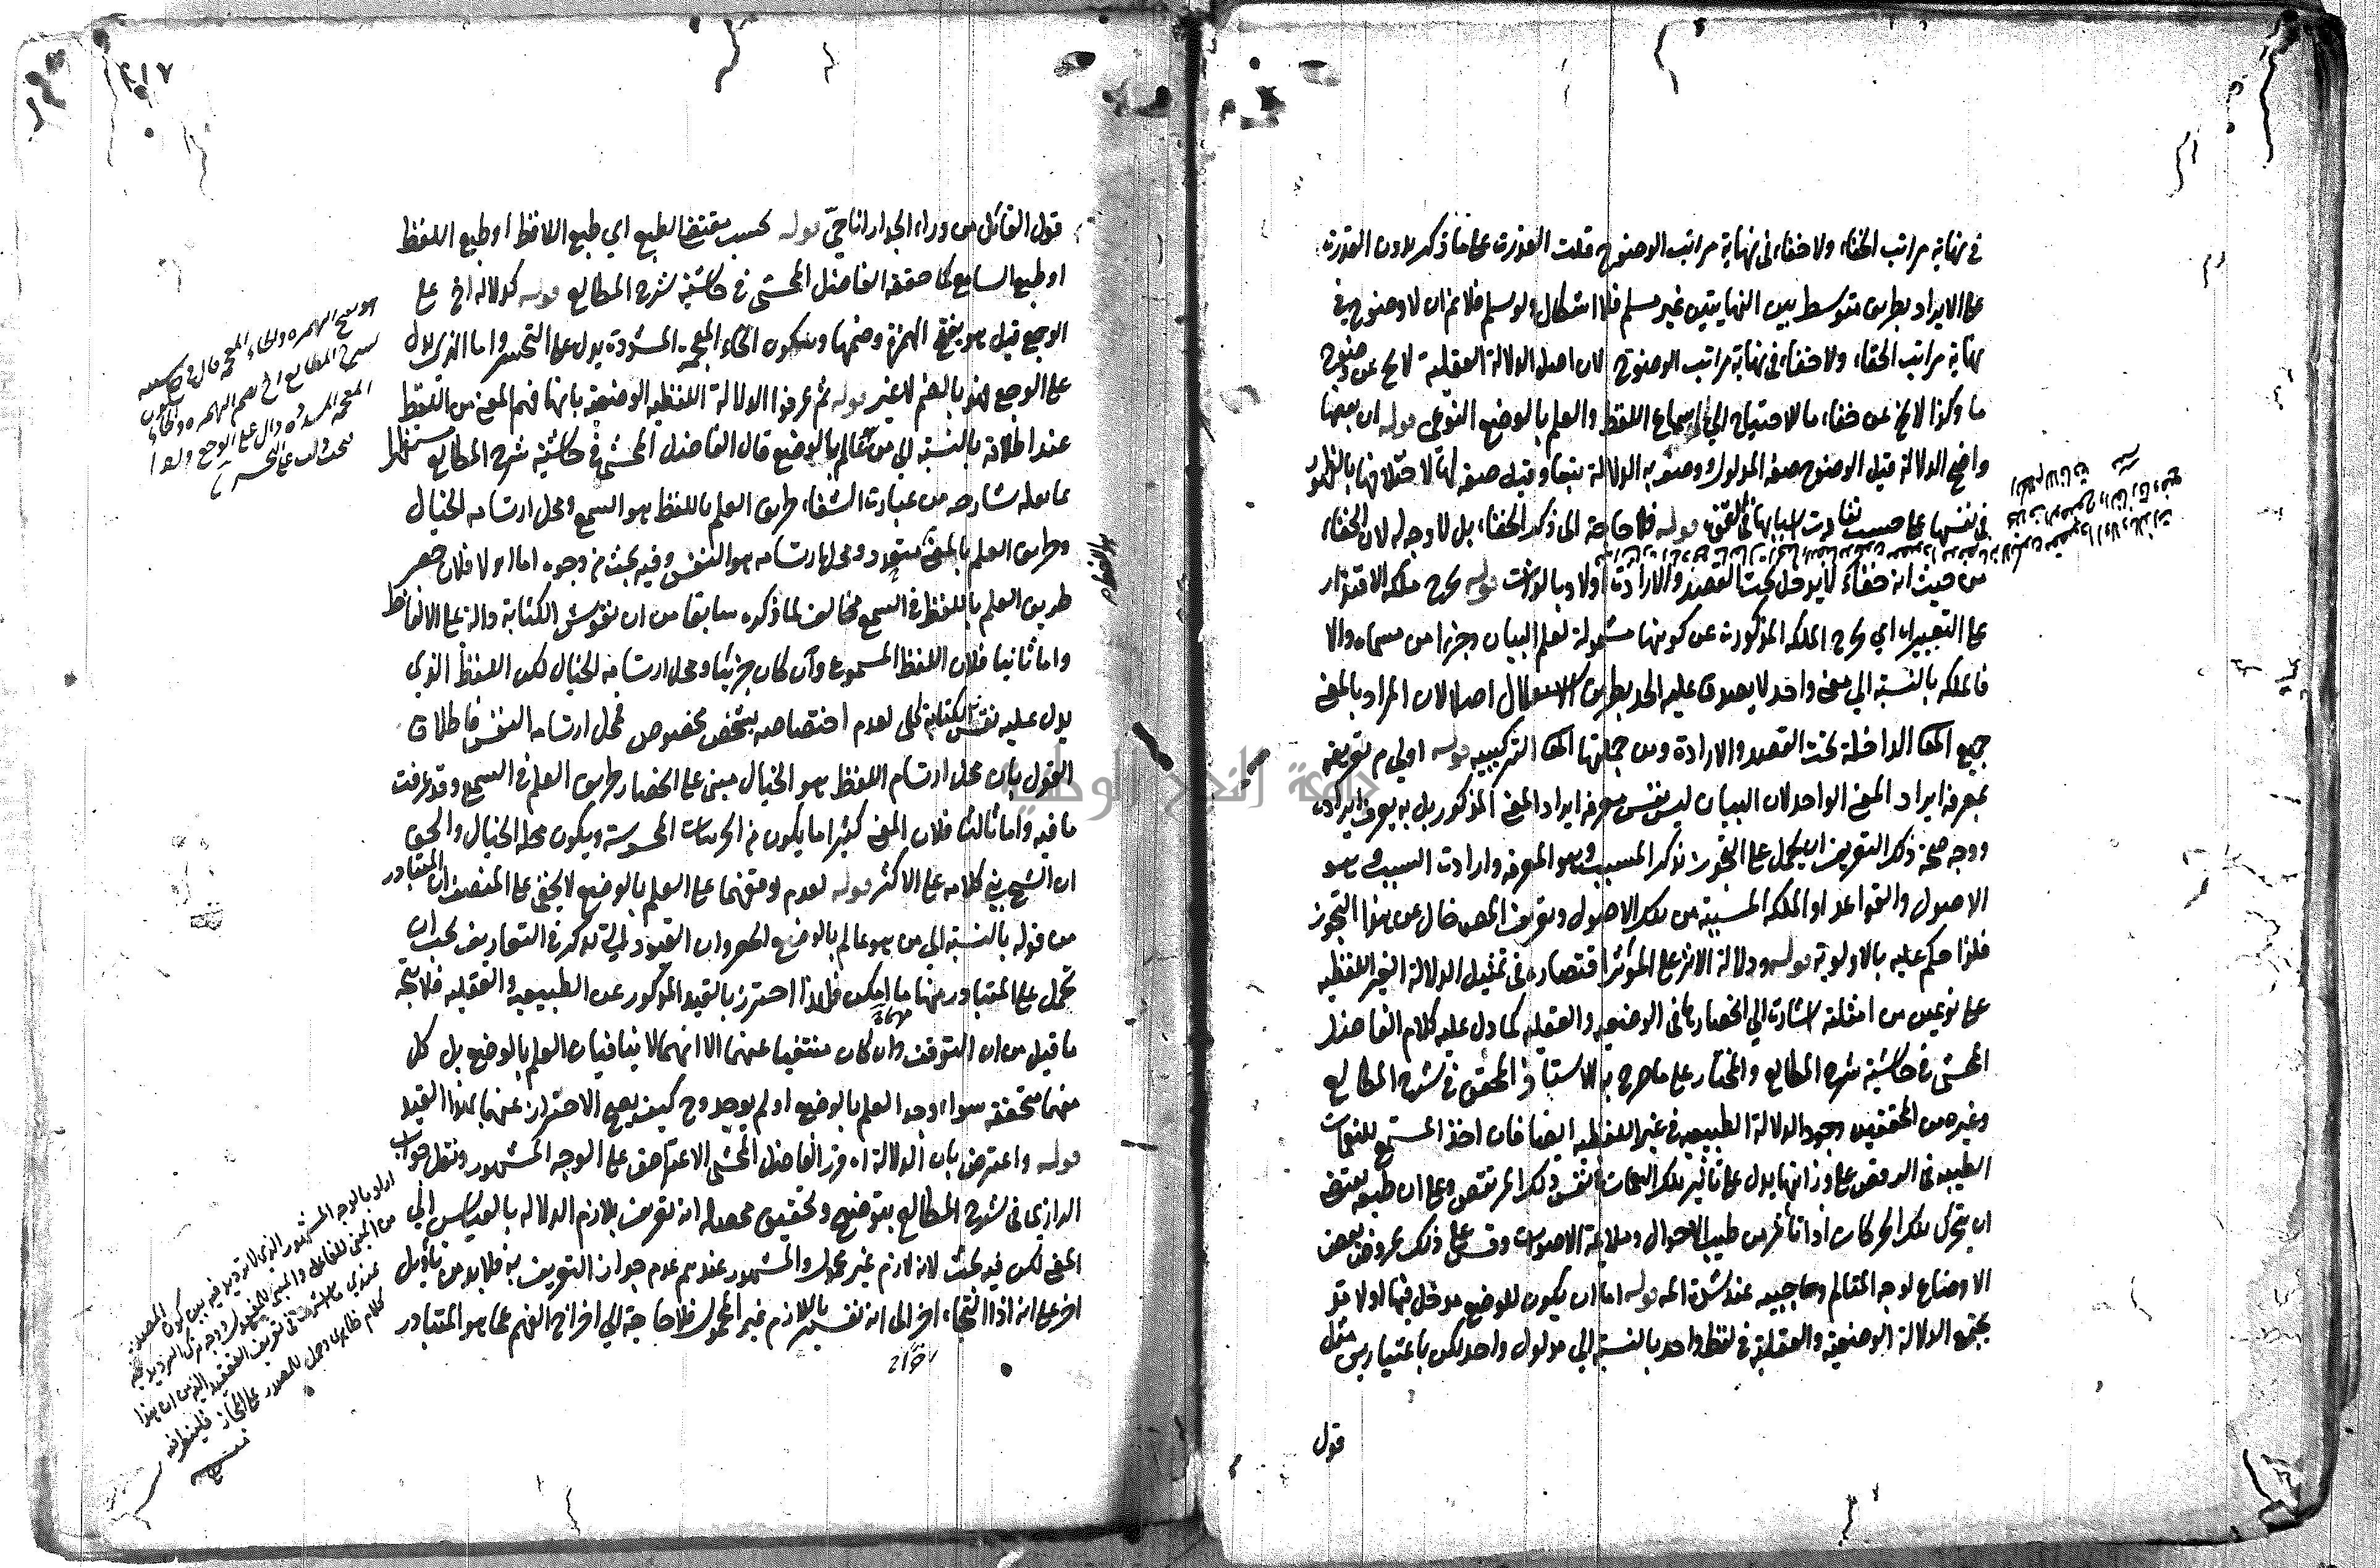 في نهاية مراتب الخفاء ولا خفاء في نهاية مراتب الوضوح قلت القدرة على ما ذكر بدون القدرة
على الايراد بطريق متوسط بين النهايتين غير مسلم فلا اشكال ولو سلم فلا نم ان لا وضوح في
نهاية مراتب الخفاء ولا خفاء في نهاية مراتب الوضوح لان اصل الدلالة العقلية لا يخ عن وضوح
ما وكذا لا يخ عن خفاء ما للاحتياج الي سماع اللفظ والعلم بالوضع النوعي قوله ان بعضها
واضح الدلالة قيل الوضوح صفة المدلول ووصف به الدلالة تبعا وقيل صفة لها لاختلافها بالظهور
في نفسها على حسب تفاوت اسبابها قوله فلا حاجة الى ذكر الخفاء بل لا وجه له لان الخفاء
من حيث انه خفاء لا يدخل تحت القصد والارادة اولا وبالذات قوله يخرج ملكة الاقتدار
على التعبير اي يخرج الملكة المذكورة عن كونها مشمولة لعلم البيان وجزءا من مسماه والا
فالملكة بالنسبة الي معنى واحد لا يصدق عليه الحد بطريق الاستقلال اصلا لان المراد بالمعنى
جميع المعا الداخلة تحت القصد والارادة ومن جملتها المعا التركيبيه قوله اولي من تعريفه
بمعرفة ايراد المعنى الواحد لان البيان ليس نفس معرفة ايراد المعنى المذكور بل به يعرف ايراده
ووجه صحة ذكر التعريف ان يحمل على التجوز بذكر المسبب وهو المعرفة وارادت السبب وهو
الاصول والقواعد او الملكة المسببة من تلك الاصول وتعريف المص خال عن هذا التجوز
فلذا حكم عليه بالاولوية قوله ودلالة الاثر على المؤثر اقتصاره في تمثيل الدلالة الغير اللفظيه
على نوعين من امثلته اشارت الي انحصارها في الوضعيه والعقليه كما دل عليه كلام الفاضل
المحشي في حاشية شرح المطالع والمختار على ما صرح به الاستاذ المحقق في شرح المطالع
وغيره من المحققين وجود الدلالة الطبيعيه في غير اللفظيه ايضا فان اخذ المستمع للنغمات
الطيبه في الرقص على وزانها يدل على تأثير تلك النغمات في نفس ذلك المرتقص وعلى ان طبعه يقتضي
ان يتحرك تلك الحركات اذا تأثر من طيب الاحوال وملايمة الاصوات وقس على ذلك عروض بعض
الاوضاع لوجه المتألم وحاجبيه عند شدة الم قوله اما ان يكون للوضع مدخل فيها اولا قد
يجتمع الدلالة الوضعية والعقلية في لفظ واحد بالنسبة الي مدلول واحد لكن باعتبارين مثل
قول
٢١٧
قول القائل من وراء الجدار انا حيّ قوله بحسب مقتضى الطبع اي طبع اللافظ او طبع اللفظ
او طبع السامع كما حققه الفاضل المحشي في حاشية شرح المطالع قوله كدلالة اخ على
الوجع قيل هو بفتح الهمزة وضمها وسكون الخاء المعجمة المشددة يدل على التحسر واما الذي يدل
على الوجع فهو بالضم لا غير قوله ثم عرفوا الدلالة اللفظية الوضعية بانها فهم المعنى من اللفظ
عند اطلاقه بالنسبة الي من هو عالم بالوضع قال الفاضل المحشي في حاشية شرح المطالع
عما نقله شارحه من عبارت الشفاء طريق العلم باللفظ هو السمع ومحل ارتسامه الخيال
وطريق العلم بالمعنى متعدد ومحل ارتسامه هو النفس وفيه بحث من وجوه اما اولا فلان حصر
طريق العلم باللفظ في السمع مخالف لما ذكره سابقا من ان نقوش الكتابة دالة على الالفاظ
واما ثانيا فلان اللفظ المسموع وان كان جزئيا ومحل ارتسامه الخيال لكن اللفظ الذي
يدل عليه نقش الكتابة كلي لعدم اختصاصه بشخص مخصوص فمحل ارتسامه النفس فاطلاق
القول بان محل ارتسام اللفظ هو الخيال مبني على انحصار طريق العلم في السمع وقد عرفت
ما فيه واما ثالثا فلان المعنى كثيرا ما يكون من الجزئيات المحسوسة ويكون محله الخيال والحق
ان الشيخ بنى كلامه على الاكثر قوله لعدم توقفهما على العلم بالوضع لا يخفى على المنصف ان المتبادر
من قوله بالنسبة الي من هو عالم بالوضع الحصر وان القيود التي تذكر في التعاريف يجب ان
تحمل على المتبادر منها ما امكن فلذا احترز بالقيد المذكور عن الطبيعيه والعقليه فلا يتجه
ما قيل من ان التوقف وان كان منتفيا عنهما الا انهما لا ينافيان العلم بالوضع بل كل
منهما متحققة سواء وجد العلم بالوضع او لم يوجد وح كيف يصح الاحتراز عنهما بهذا القيد
قوله واعترض بان الدلالة اه قرر الفاضل المحشي الاعتراض على الوجه المشهور ونقل جواب
الرازي في شرح المطالع بتوضيح وتحقيق محصله انه تعريف بلازم الدلاله بالقياس الي
المعنى لكن فيه بحث لانه لازم غير محمول والمشهور عندهم عدم جواز التعريف به فلا بد من تأويل
اخر على انه اذا التجاء اخر الى انه تفسير باللازم غير المحمول فلا حاجة الي اخراج الفهم عما هو المتبادر
اراد بالوجه المشهور الذي لا ترديد فيه بين كون المصدر
من المبني للفاعل والمبني للمفعول ووجه ترك الترديد فيه